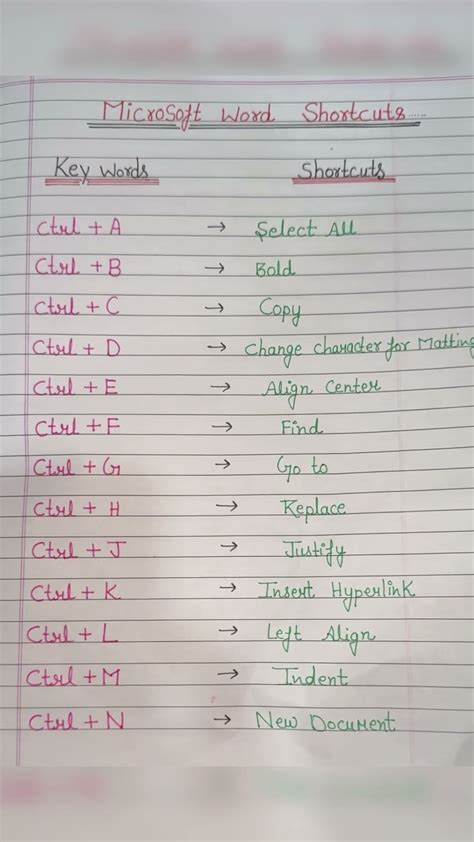 Microsoft Word Shortcuts.....
Key Words Shortcuts
Ctrl + A → Select All
Ctrl + B → Bold
Ctrl + C → Copy
Ctrl + D → Change character for Matting
Ctrl + E → Align Center
Ctrl + F → Find
Ctrl + G → Go to
Ctrl + H → Replace
Ctrl + J → Justify
Ctrl + K → Insert Hyperlink
Ctrl + L → Left Align
Ctrl + M → Indent
Ctrl + N → New Document